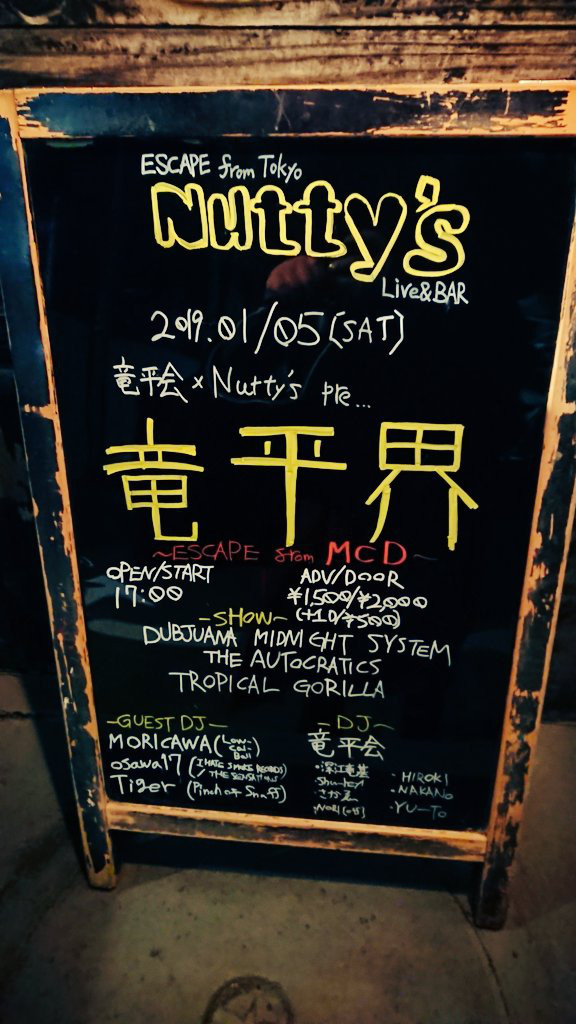 ESCAPE from Tokyo
Nutty's
Live&BAR
2019.01/05(SAT)
竜平会×Nutty's pre...
竜平界
~ESCAPE from MCD~
OPEN/START
17:00
ADV/DOOR
¥1,500/¥2,000
(+1D/¥500)
-SHOW-
DUBJUANA MIDNIGHT SYSTEM
THE AUTOCRATICS
TROPICAL GORILLA
-GUEST DJ-
MORICAWA(Low-Cal-Ball)
osawa17(I HATE SMOKE RECORDS)
/THE SENSATIONS)
Tiger (Pinch of Snuff)
-DJ-
竜平会
・深江竜基
・さかえ
・HIROKI
・NAKANO
・YU-TO